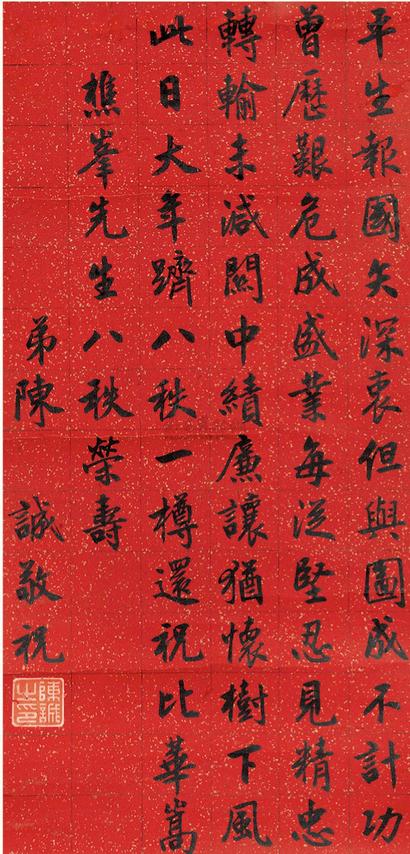 平生報國矢深衷但與圖成不計功
曾歷艱危成盛業每從堅忍見精忠
轉輸未減關中績廉讓猶懷樹下風
此日大年躋八秩一樽還祝比華嵩
樵峯先生八秩榮壽
弟陳誠敬祝
陳誠之印